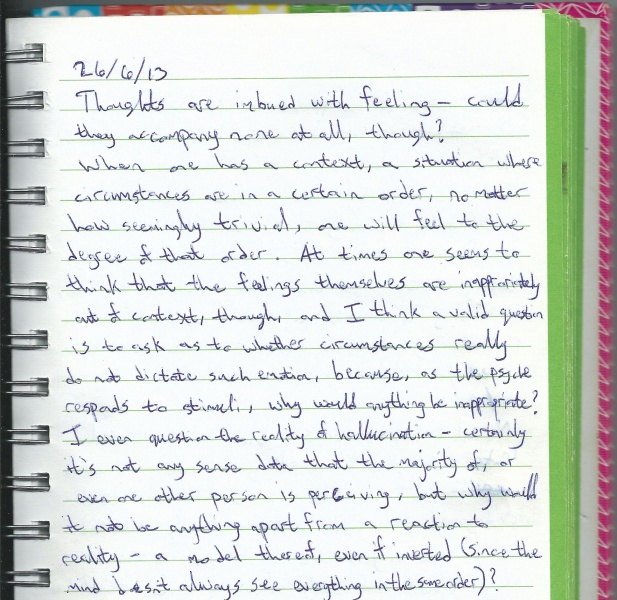 26/6/13
Thoughts are imbued with feeling – could
they accompany none at all, though?
When one has a context, a situation where
circumstances are in a certain order, no matter
how seemingly trivial, one will feel to the
degree of that order. At times one seems to
think that the feelings themselves are inappropriately
out of context, though, and I think a valid question
is to ask as to whether circumstances really
do not dictate such emotion, because, as the psyche
responds to stimuli, why would anything be inappropriate?
I even question the reality of hallucination – certainly
it's not any sense data that the majority of, or
even one other person is perceiving, but why would
it not be anything apart from a reaction to
reality – a model thereof, even if inverted (since the
mind doesn't always see everything in the same order)?